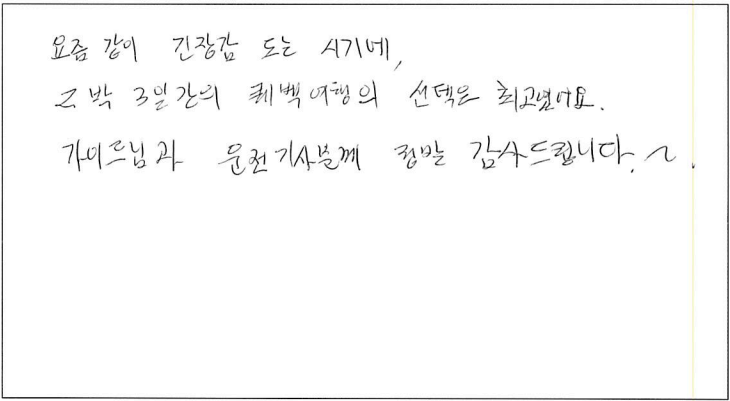 요즘 같이 긴장감 도는 시기에,
2박 3일간의 퀘벡여행의 선택은 최고였어요.
가이드님과 운전기사분께 정말 감사드립니다.~.